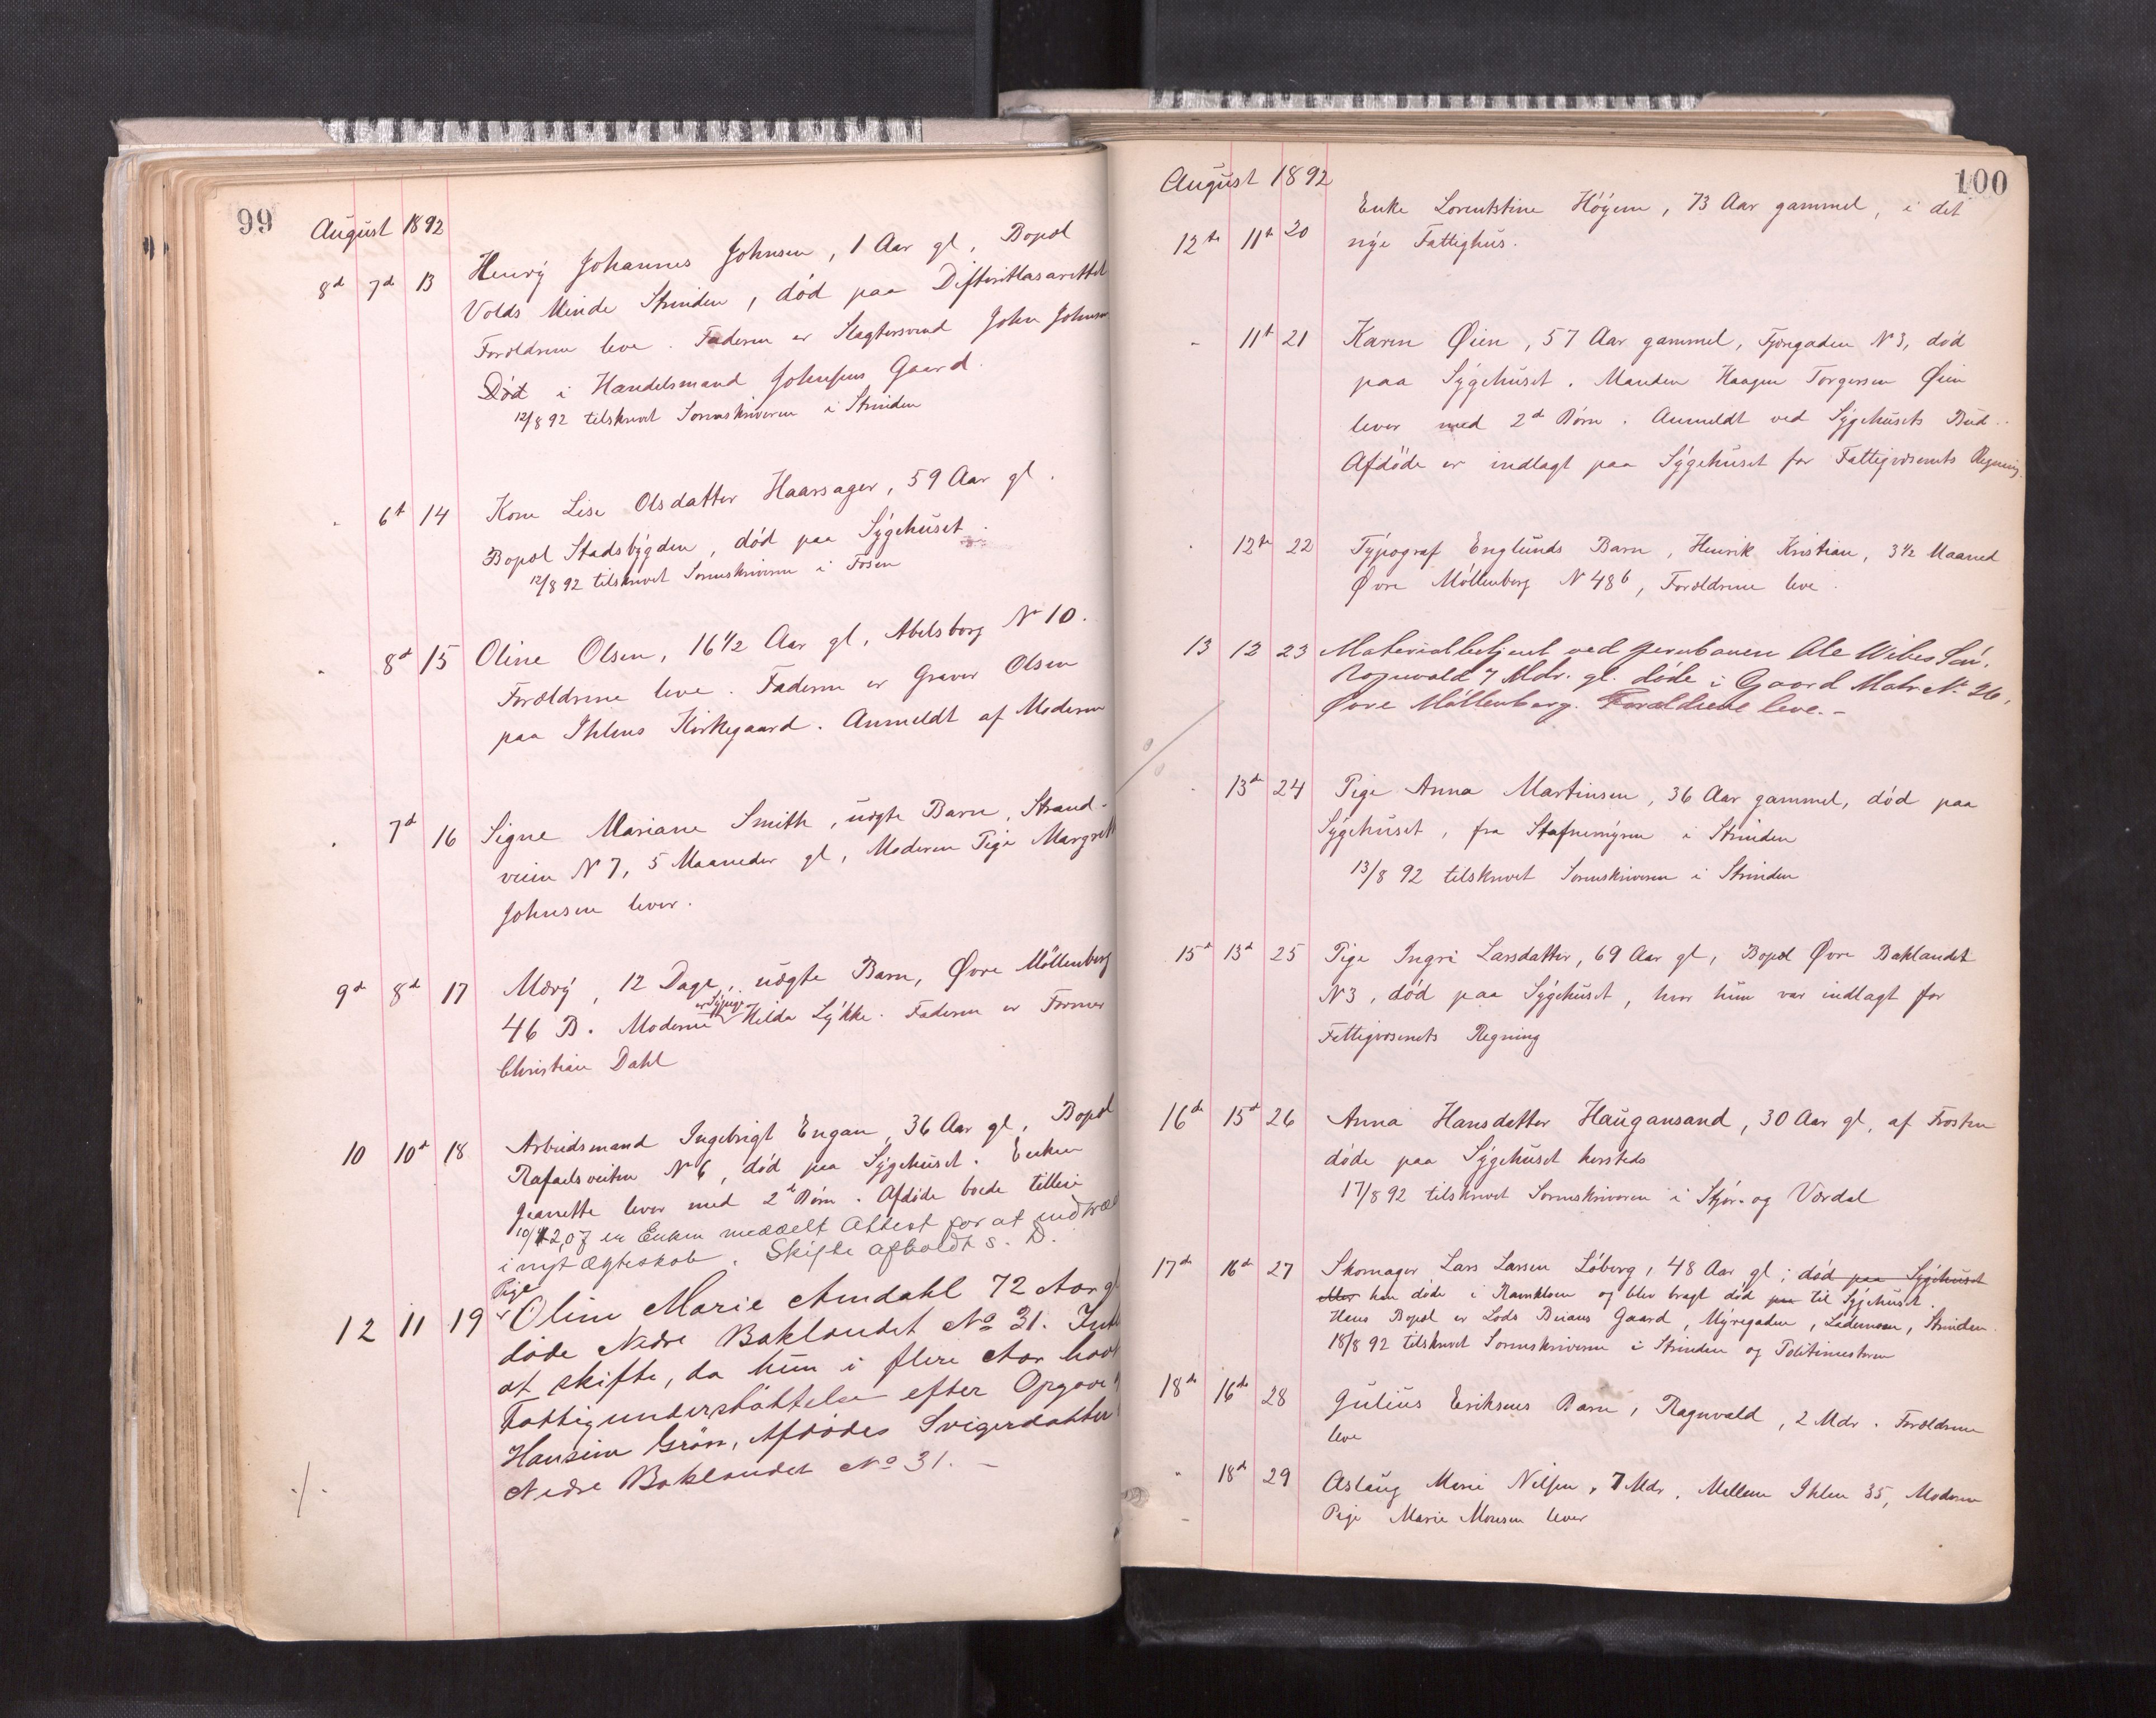 99
August 1892
8d 7d 13 Henrÿ Johannes Johnsen, 1 Aar gl, Bopæl
Volds Minde Strinden, død paa Difteritlasarettet
Forældrene leve. Faderen er Slagtersvend John Johnsen
Død i Handelsmand Johnsens Gaard.
12/8 92 tilskrevet Sorenskriveren i Strinden
" 6t 14 Kone Lise Olsdatter Haarsager, 59 Aar gl.
Bopæl Stadsbÿgden, død paa Sÿgehuset.
12/8 92 tilskrevet Sorenskriveren i Fosen
" 8d 15 Oline Olsen, 16 1/2 Aar gl, Abelsborg No 10.
Forældrene leve. Faderen er Graver Olsen
paa Ihlens Kirkegaard. Anmeldt af Moderen
" 7d 16 Signe Mariane Smith, uægte Barn, Strand-
veien N 7, 5 Maaneder gl, Moderen Pige Margreth
Johnsen lever.
9d 8d 17 Mærÿ, 12 Dage, uægte Barn, Øvre Møllenberg
46 B. Moderen er Sÿpige Hilda Lÿkke. Faderen er Former
Christian Dahl
10 10d 18 Arbeidsmand Ingebrigt Engan, 36 Aar gl, Bopæl
Rafaelsveiten No 6, død paa Sÿgehuset. Enken
Jeanette lever med 2 Børn. Afdøde boede tilleie
10/12,07 er Enken meddelt Attest for at indtræde
i nyt Ægteskab. Skifte afholdt s. D.
Pige
12 11 19 Oline Marie Amdahl 72 Aar gl
døde Nedre Baklandet No 31. Intet
at skifte, da hun i flere Aar havt
Fattigunderstøttelse efter Opgave
Hansine Grøn, Afdødes Svigerdatter
Nedre Baklandet No 31. -
./.
100
August 1892
12te 11t 20 Enke Lorentstine Høÿem, 73 Aar gammel, i det
nÿe Fattighus.
" 11t 21 Karen Øien, 57 Aar gammel, Fjæregaden N 3, død
paa Sÿgehuset. Manden Haagen Torgersen Øien
lever med 2d Børn. Anmeldt ved Sÿgehusets Bud.
Afdøde er indlagt paa Sÿgehuset for Fattigvæsenets Regning.
" 12te 22 Tÿpograf Englunds Barn, Henrik Kristian, 3 1/2 Maaned
Øvre Møllenberg N 48b, Forældrene leve.
13 12 23 Materialbetjent ved Jernbanen Ole Wibes Søn,
Ragnvald 7 Mdr. gl. døde i Gaard Matr. No 26,
Øvre Møllenberg. Forældrene leve. -
" 13de 24 Pige Anna Martinsen, 36 Aar gammel, død paa
Sÿgehuset, fra Stafnemÿren i Strinden
13/8 92 tilskrevet Sorenskriveren i Strinden
15d 13d 25 Pige Ingri Larsdatter, 69 Aar gl, Bopæl Øvre Baklandet
N 3, død paa Sÿgehuset, hvor hun var indlagt for
Fattigvæsenets Regning
16de 15d 26 Anna Hansdatter Haugansand, 30 Aar gl, af Frosten
døde paa Sÿgehuset hersteds
17/8 92 tilskrevet Sorenskriveren i Stjør- og Værdal
17de 16de 27 Skomager Lars Larsen Løberg, 48 Aar gl; død paa Sÿgehuset
eller han døde i Ramkloen og blev bragt død paa til Sÿgehuset.
Hans Bopæl er Lods Brians Gaard, Mÿregaden, Lademoen, Strinden.
18/8 92 tilskrevet Sorenskriveren i Strinden og Politimesteren
18de 16de 28 Julius Eriksens Barn, Ragnvald, 2 Mdr. Forældrene
leve
" 18d 29 Aslaug Marie Nilsen, 7 Mdr, Mellem Ihlen 35, Moderen
Pige Marie Monsen lever